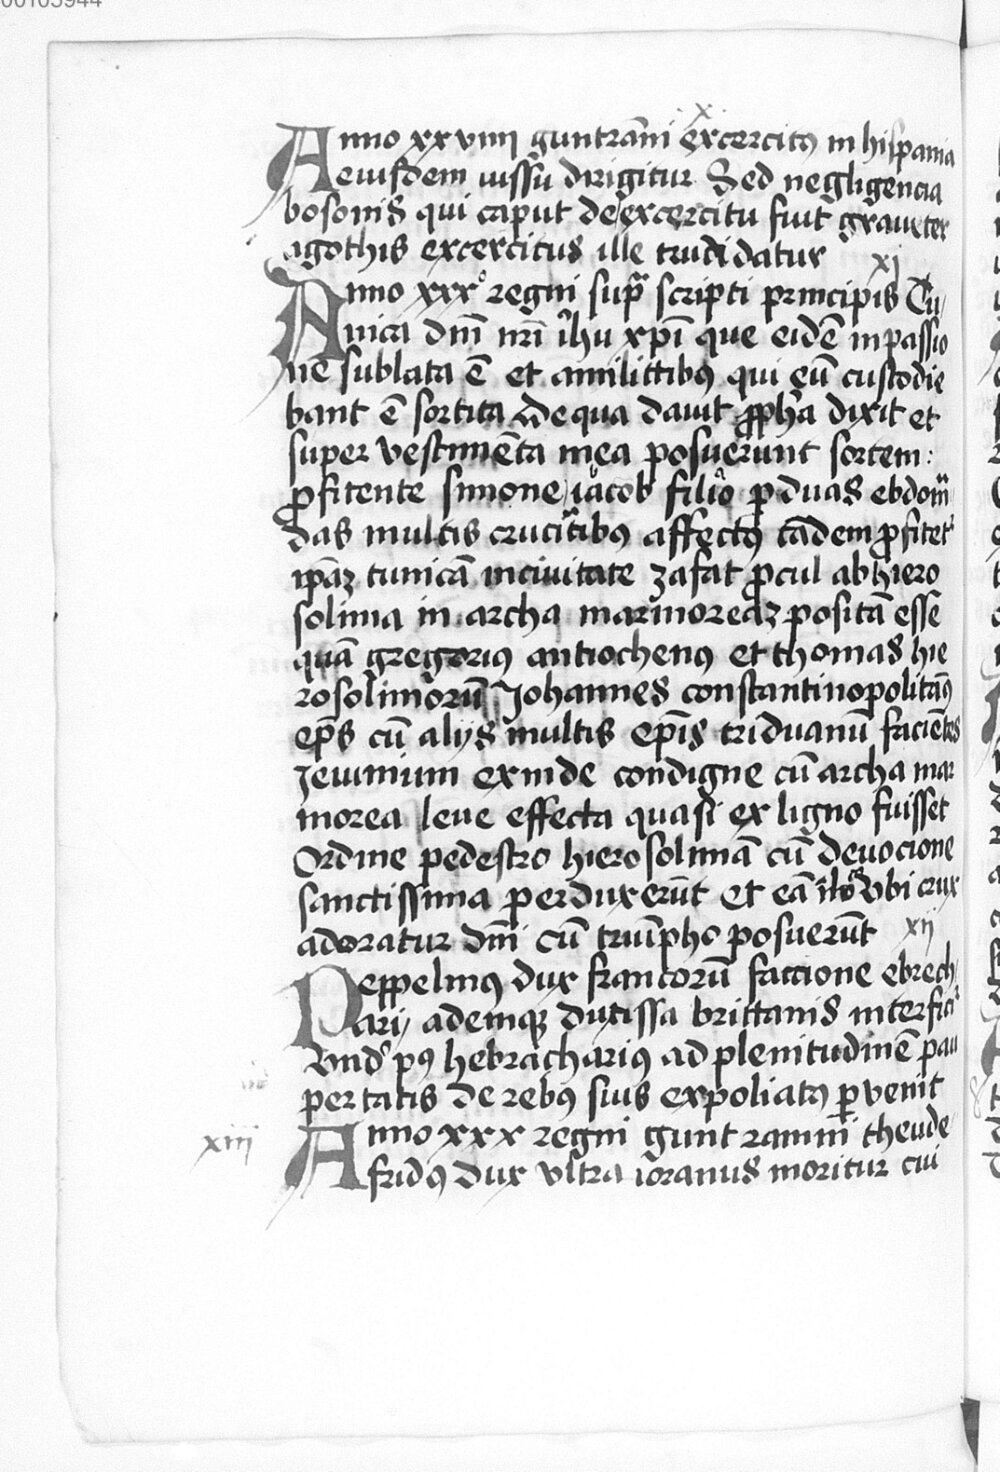 00105944
x
Anno xxviiii guntra̅ni excercitꝰ in hispania
eiusdem iussu dirigitur Sed negligencia
bosonis qui caput de excercitu fuit grauiter
agothis excercitus ille trudidatur
xi
Anno xxxº regni supᵃ scripti principis Tu
nica dn̅i nr̅i ih̅u xp̅i que eide̅ inpassio
ne̅ sublata e̅ et amilittibꝰ qui eu̅ custodie
bant e̅ sortita de qua dauit ꝓph̅a dixit et
super vestime̅ta mea posuerunt sortem :
ꝓfitente simone iacob filio ꝑ duas ebdom̅
das multis cruciᵃtibꝰ affectꝰ ta̅dem ꝓfitet᷑
ip̅aꝫ tunica̅ inciuitate zafat ꝓcul abhiero
solima in archa marmoreaꝫ posita̅ esse
qua̅ gregorius antiochenꝰ et thomas hie
rosolimoru̅ Johannes constantinopolita̅ꝰ
ep̅s cu̅ alijs multis ep̅is triduanu̅ facie̅tes
Jeiunium exinde condigne cu̅ archa mar
morea leue effecta quasi ex ligno fuisset
Ordine pedestro hierosolima̅ cu̅ deuocione
sanctissima perduxeru̅t et ea̅ vbi crux
adoratur dn̅i cu̅ triu̅pho posueru̅t
xii
Peppelinꝰ dux francoru̅ factione ebrech
arij ademqꝫ dutissa brittanis interfici᷑
Vnd᷑ pꝰ hebracharius ad plenitudine̅ pau
pertatis de rebꝰ suis expoliatꝰ ꝑvenit
xiii
Anno xxx regni guntramni theude
fridꝰ dux vltra ioranus moritur cui